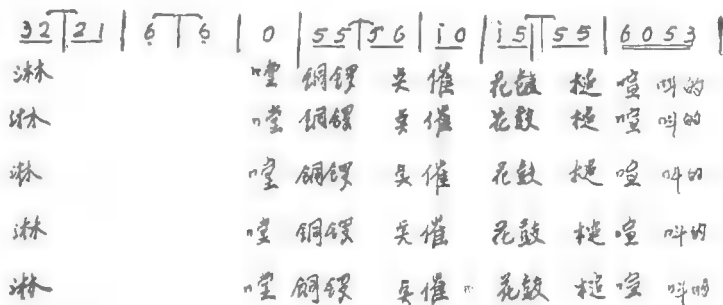 32 21 | 6 6 | 0 | 55 56 | i 0 | i5 55 | 6053 |
淋 嘡 铜锣 吴 催 花鼓 槌 喧 呌的
淋 嘡 铜锣 吴 催 花鼓 槌 喧 呌的
淋 嘡 铜锣 吴 催 花鼓 槌 喧 呌的
淋 嘡 铜锣 吴 催 花鼓 槌 喧 呌的
淋 嘡 铜锣 吴 催 花鼓 槌 喧 呌的